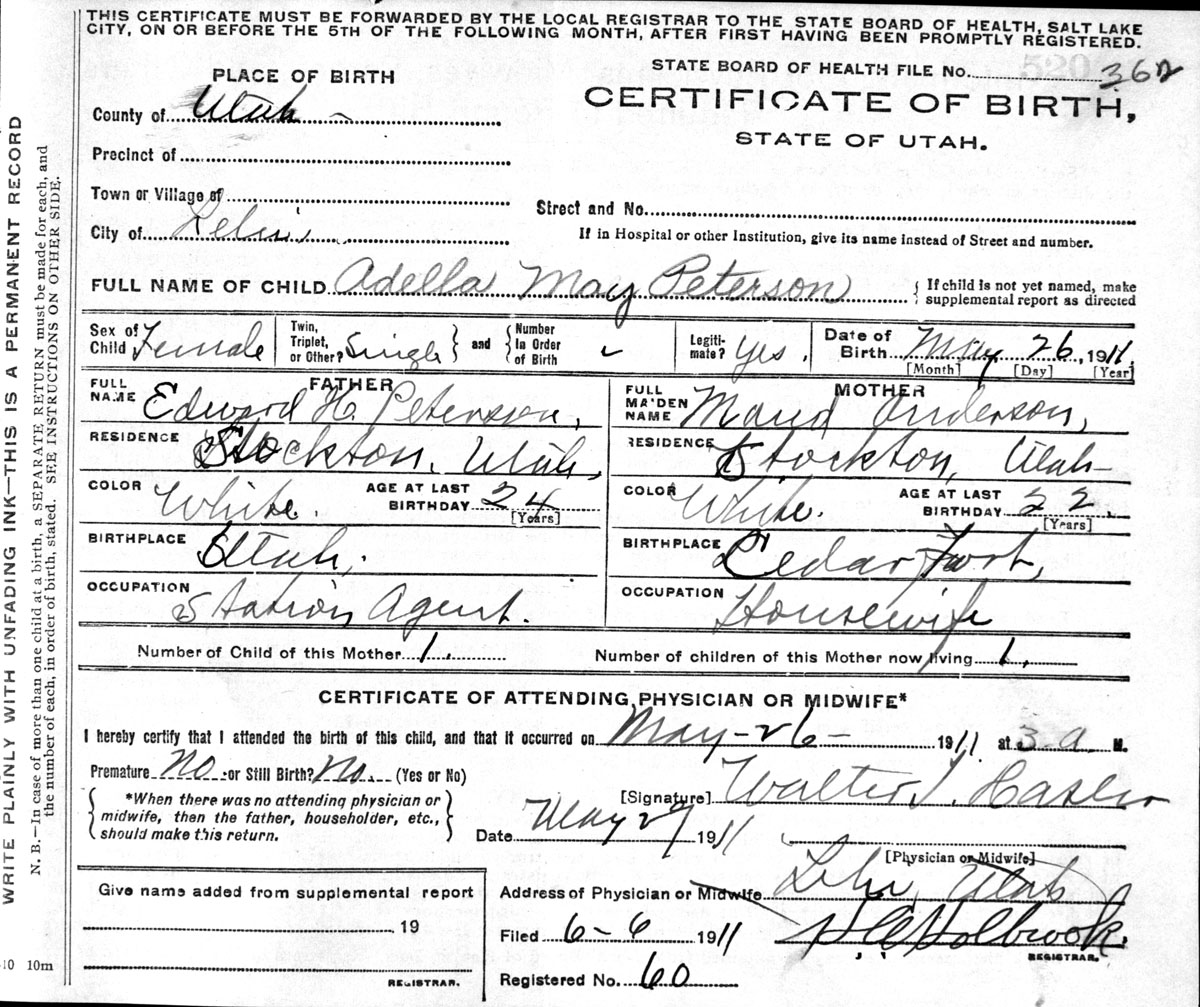 THIS CERTIFICATE MUST BE FORWARDED BY THE LOCAL REGISTRAR TO THE STATE BOARD OF HEALTH, SALT LAKE
CITY, ON OR BEFORE THE 5TH OF THE FOLLOWING MONTH, AFTER FIRST HAVING BEEN PROMPTLY REGISTERED.
WRITE PLAINLY WITH UNFADING INK—THIS IS A PERMANENT RECORD
N. B.—In case of more than one child at a birth, a SEPARATE RETURN must be made for each, and
the number of each, in order of birth, stated. SEE INSTRUCTIONS ON OTHER SIDE.
PLACE OF BIRTH
STATE BOARD OF HEALTH FILE No. 362
County of Utah
CERTIFICATE OF BIRTH,
STATE OF UTAH.
Precinct of
Town or Village of
Street and No.
City of Lehi
If in Hospital or other Institution, give its name instead of Street and number.
FULL NAME OF CHILD Adella May Peterson { If child is not yet named, make
supplemental report as directed
Sex of Child Female
Twin, Triplet, or Other? Single } and { Number In Order of Birth
Legiti-mate? Yes.
Date of Birth May 26, 1911
[Month] [Day] [Year]
FATHER
FULL NAME Edward H. Peterson,
MOTHER
FULL MAIDEN NAME Maud Anderson,
RESIDENCE Stockton, Utah,
RESIDENCE Stockton, Utah
COLOR White. AGE AT LAST BIRTHDAY 24 [Years]
COLOR White. AGE AT LAST BIRTHDAY 22. [Years]
BIRTHPLACE Utah,
BIRTHPLACE Cedar Fort,
OCCUPATION Station Agent.
OCCUPATION Housewife
Number of Child of this Mother 1. Number of children of this Mother now living 1.
CERTIFICATE OF ATTENDING PHYSICIAN OR MIDWIFE*
I hereby certify that I attended the birth of this child, and that it occurred on May-26- 1911 at 3 a M.
Premature No or Still Birth? No. (Yes or No)
{ *When there was no attending physician or
midwife, then the father, householder, etc.,
should make this return. }
[Signature] Walter
Date May 27 1911
[Physician or Midwife]
Give name added from supplemental report
19
REGISTRAR.
Address of Physician or Midwife Lehi, Utah
Filed 6-6 1911 Holbrook.
REGISTRAR.
Registered No. 60
10 10m